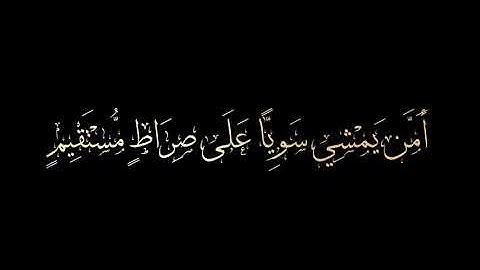 أَمَّن يَمْشِي سَوِيًّا عَلَى صِرَاطٍ مُّسْتَقِيمٍ